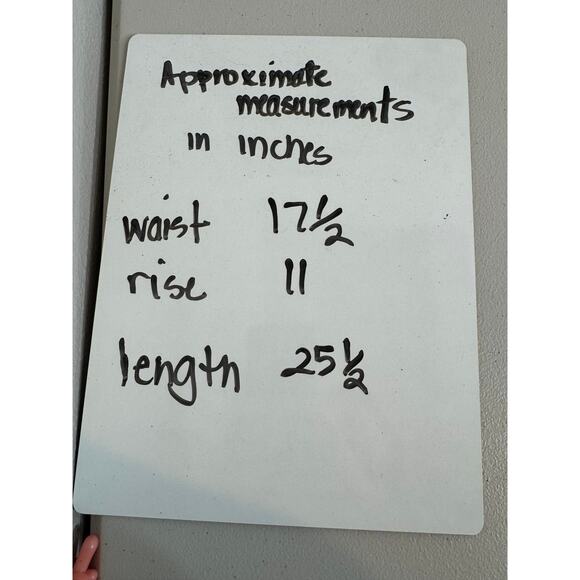 Approximate
measurements
in inches
waist 17 1/2
rise 11
length 25 1/2